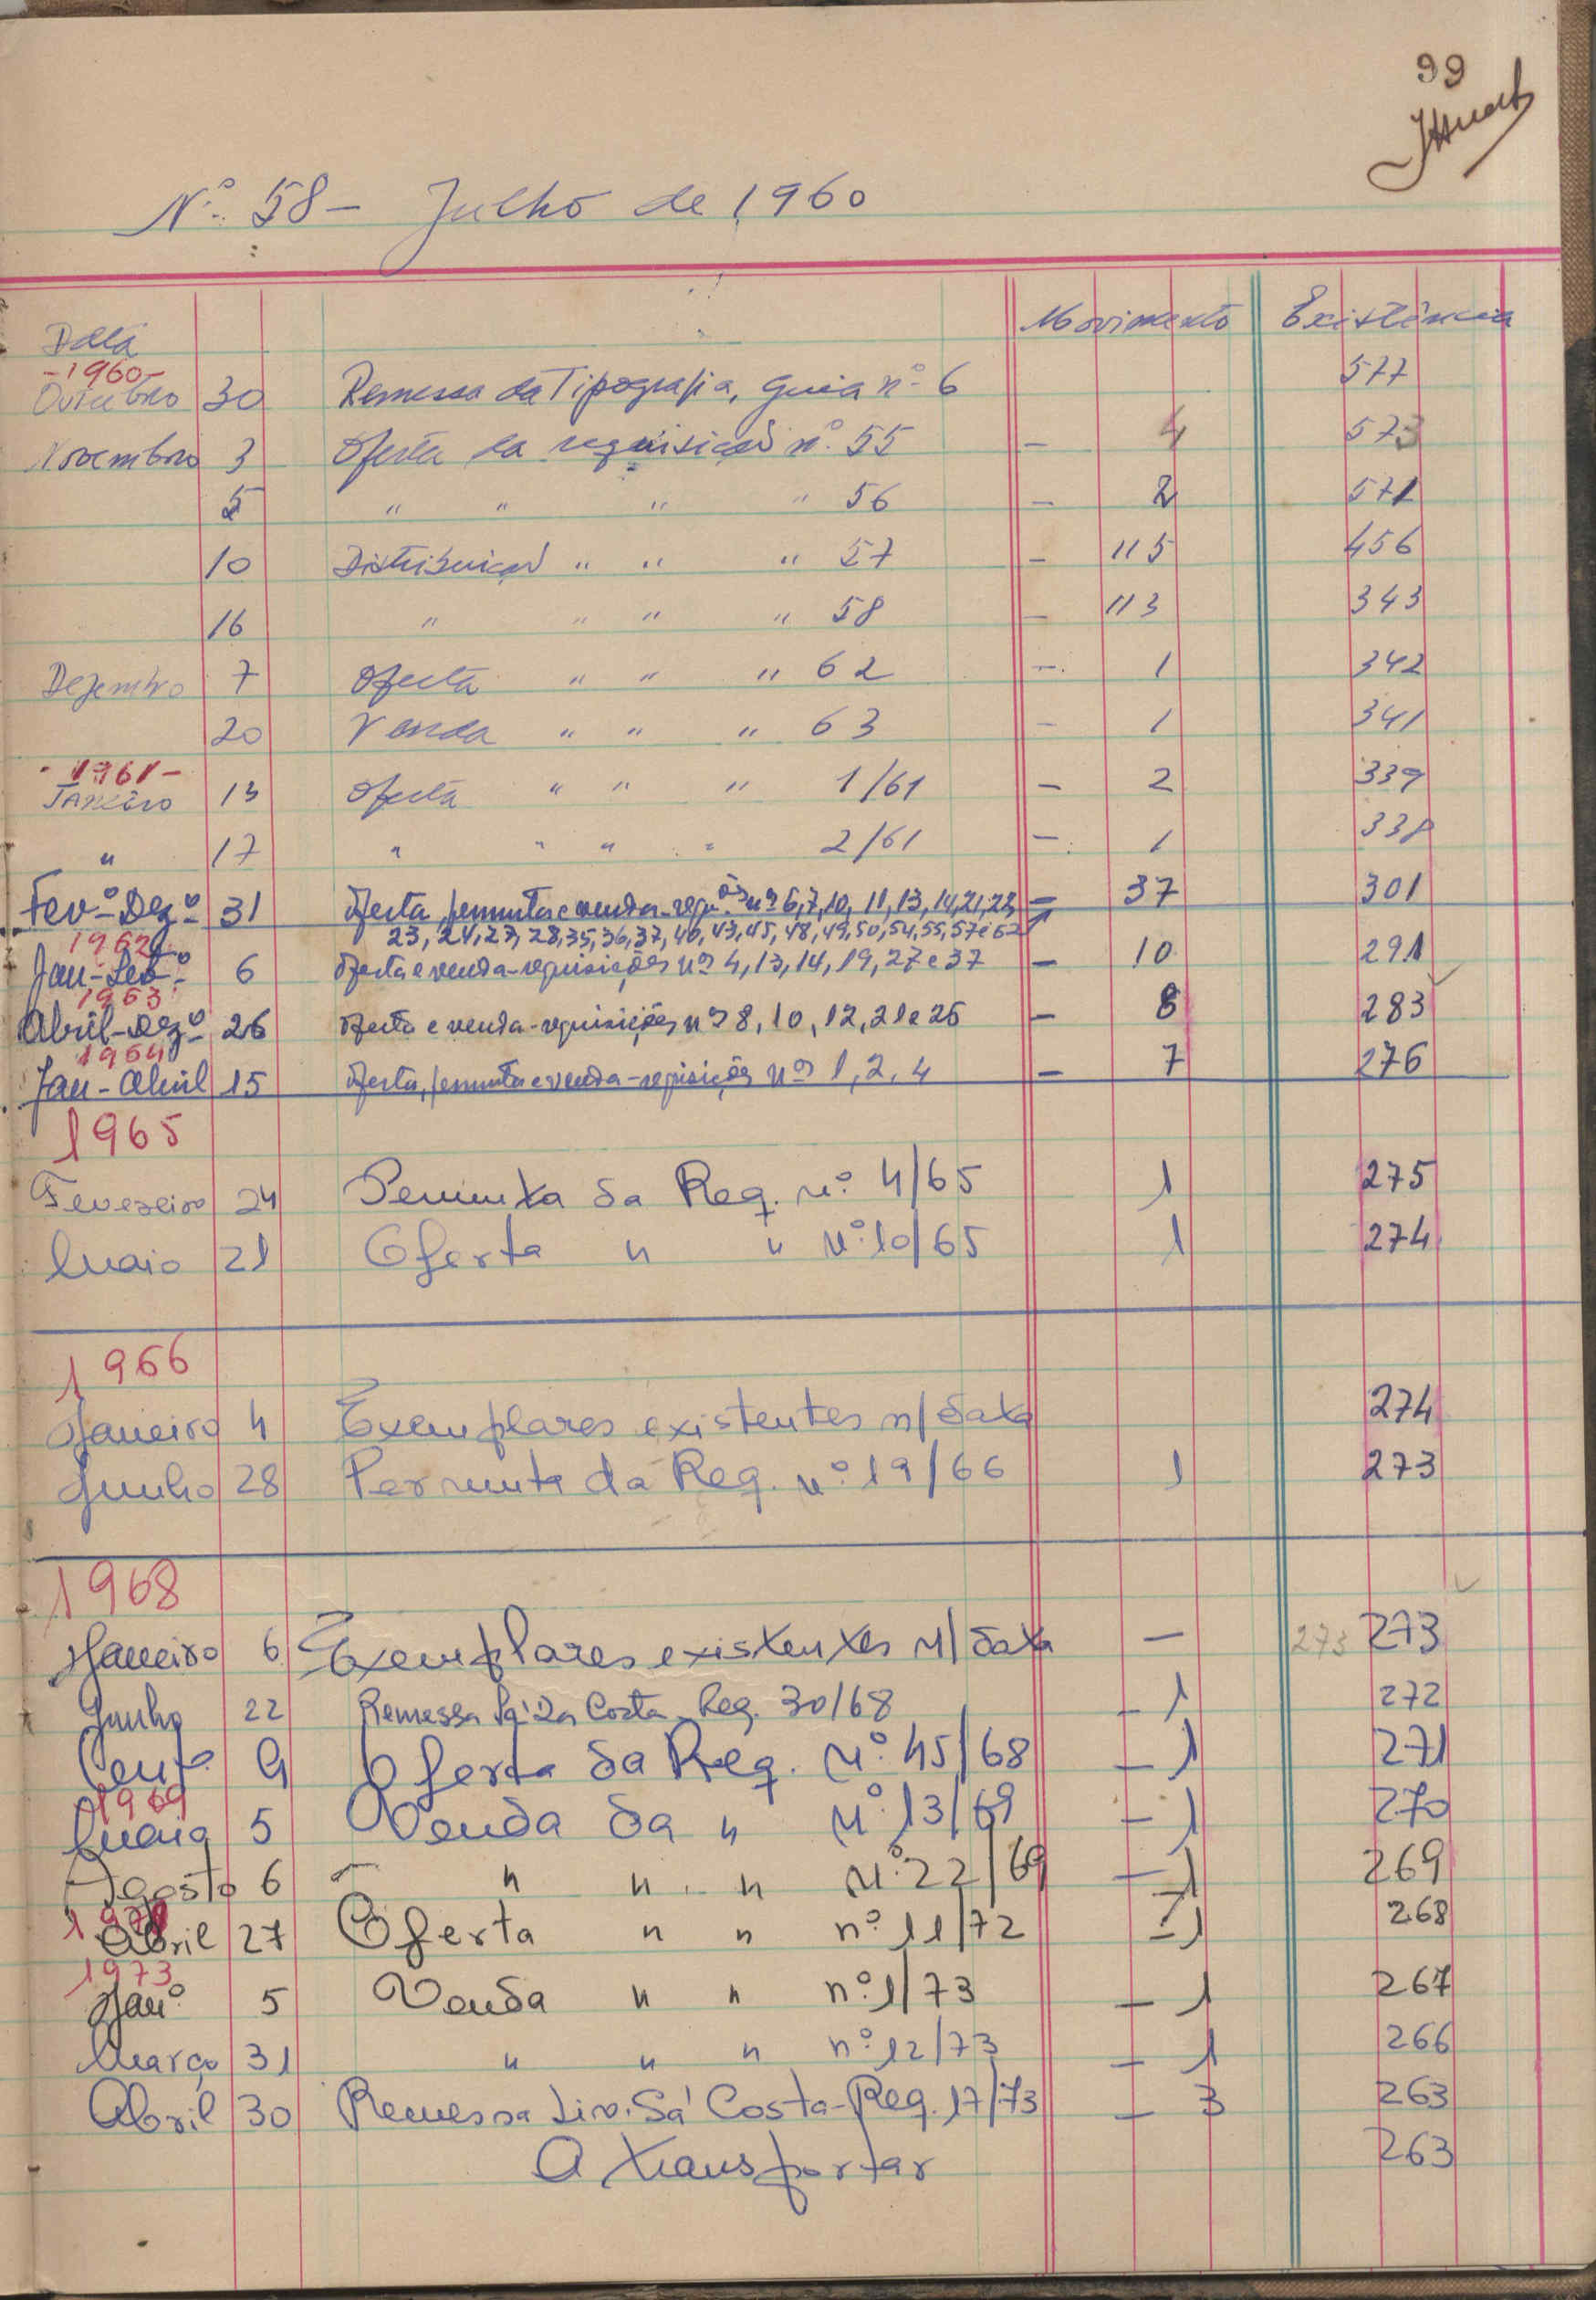 99
Nº 58 - Julho de 1960
Data Movimento Existência
-1960-
Outubro 30 Remessa da Tipografia, Guia nº 6 577
Novembro 3 Oferta da requisição nº 55 - 4 573
5 " " " " 56 - 2 571
10 Distribuição " " " 57 - 115 456
16 " " " " 58 - 113 343
Dezembro 7 Oferta " " " 62 - 1 342
20 Venda " " " 63 - 1 341
-1961-
Janeiro 13 Oferta " " " 1/61 - 2 339
" 17 " " " " 2/61 - 1 338
Fevº-Dezº 31 Oferta, permuta e venda-requões nos 6,7,10, 11,13,14,21,22, - 37 301
23, 24, 27, 28, 35, 36, 37, 40, 43, 45, 48, 49, 50, 54, 55, 57 e 62
1962
Jan-Setº 6 Oferta e venda-requisições nos 4, 13, 14, 19, 27 e 37 - 10 291
1963
Abril-Dezº 26 Oferta e venda-requisições nos 8, 10, 12, 21 e 26 - 8 283
1964
Jan-Abril 15 Oferta, permuta e venda-requisições nos 1, 2, 4 - 7 276
1965
Fevereiro 24 Permuta da Req. nº 4/65 1 275
Maio 21 Oferta " " Nº 10/65 1 274
1966
Janeiro 4 Exemplares existentes n/data 274
Junho 28 Permuta da Req. nº 19/66 1 273
1968
Janeiro 6 Exemplares existentes n/data - 273 273
Junho 22 Remessa Sá da Costa Req. 30/68 - 1 272
9 Oferta da Req. Nº 45/68 - 1 271
1969
Maio 5 Venda da " Nº 13/69 - 1 270
Agosto 6 " " " Nº 22/69 - 1 269
Abril 27 Oferta " " nº 11/72 - 1 268
1973
Janº 5 Venda " " nº 1/73 - 1 267
Março 31 " " " nº 12/73 - 1 266
Abril 30 Remessa Liv. Sá Costa-Req. 17/73 - 3 263
A transportar 263